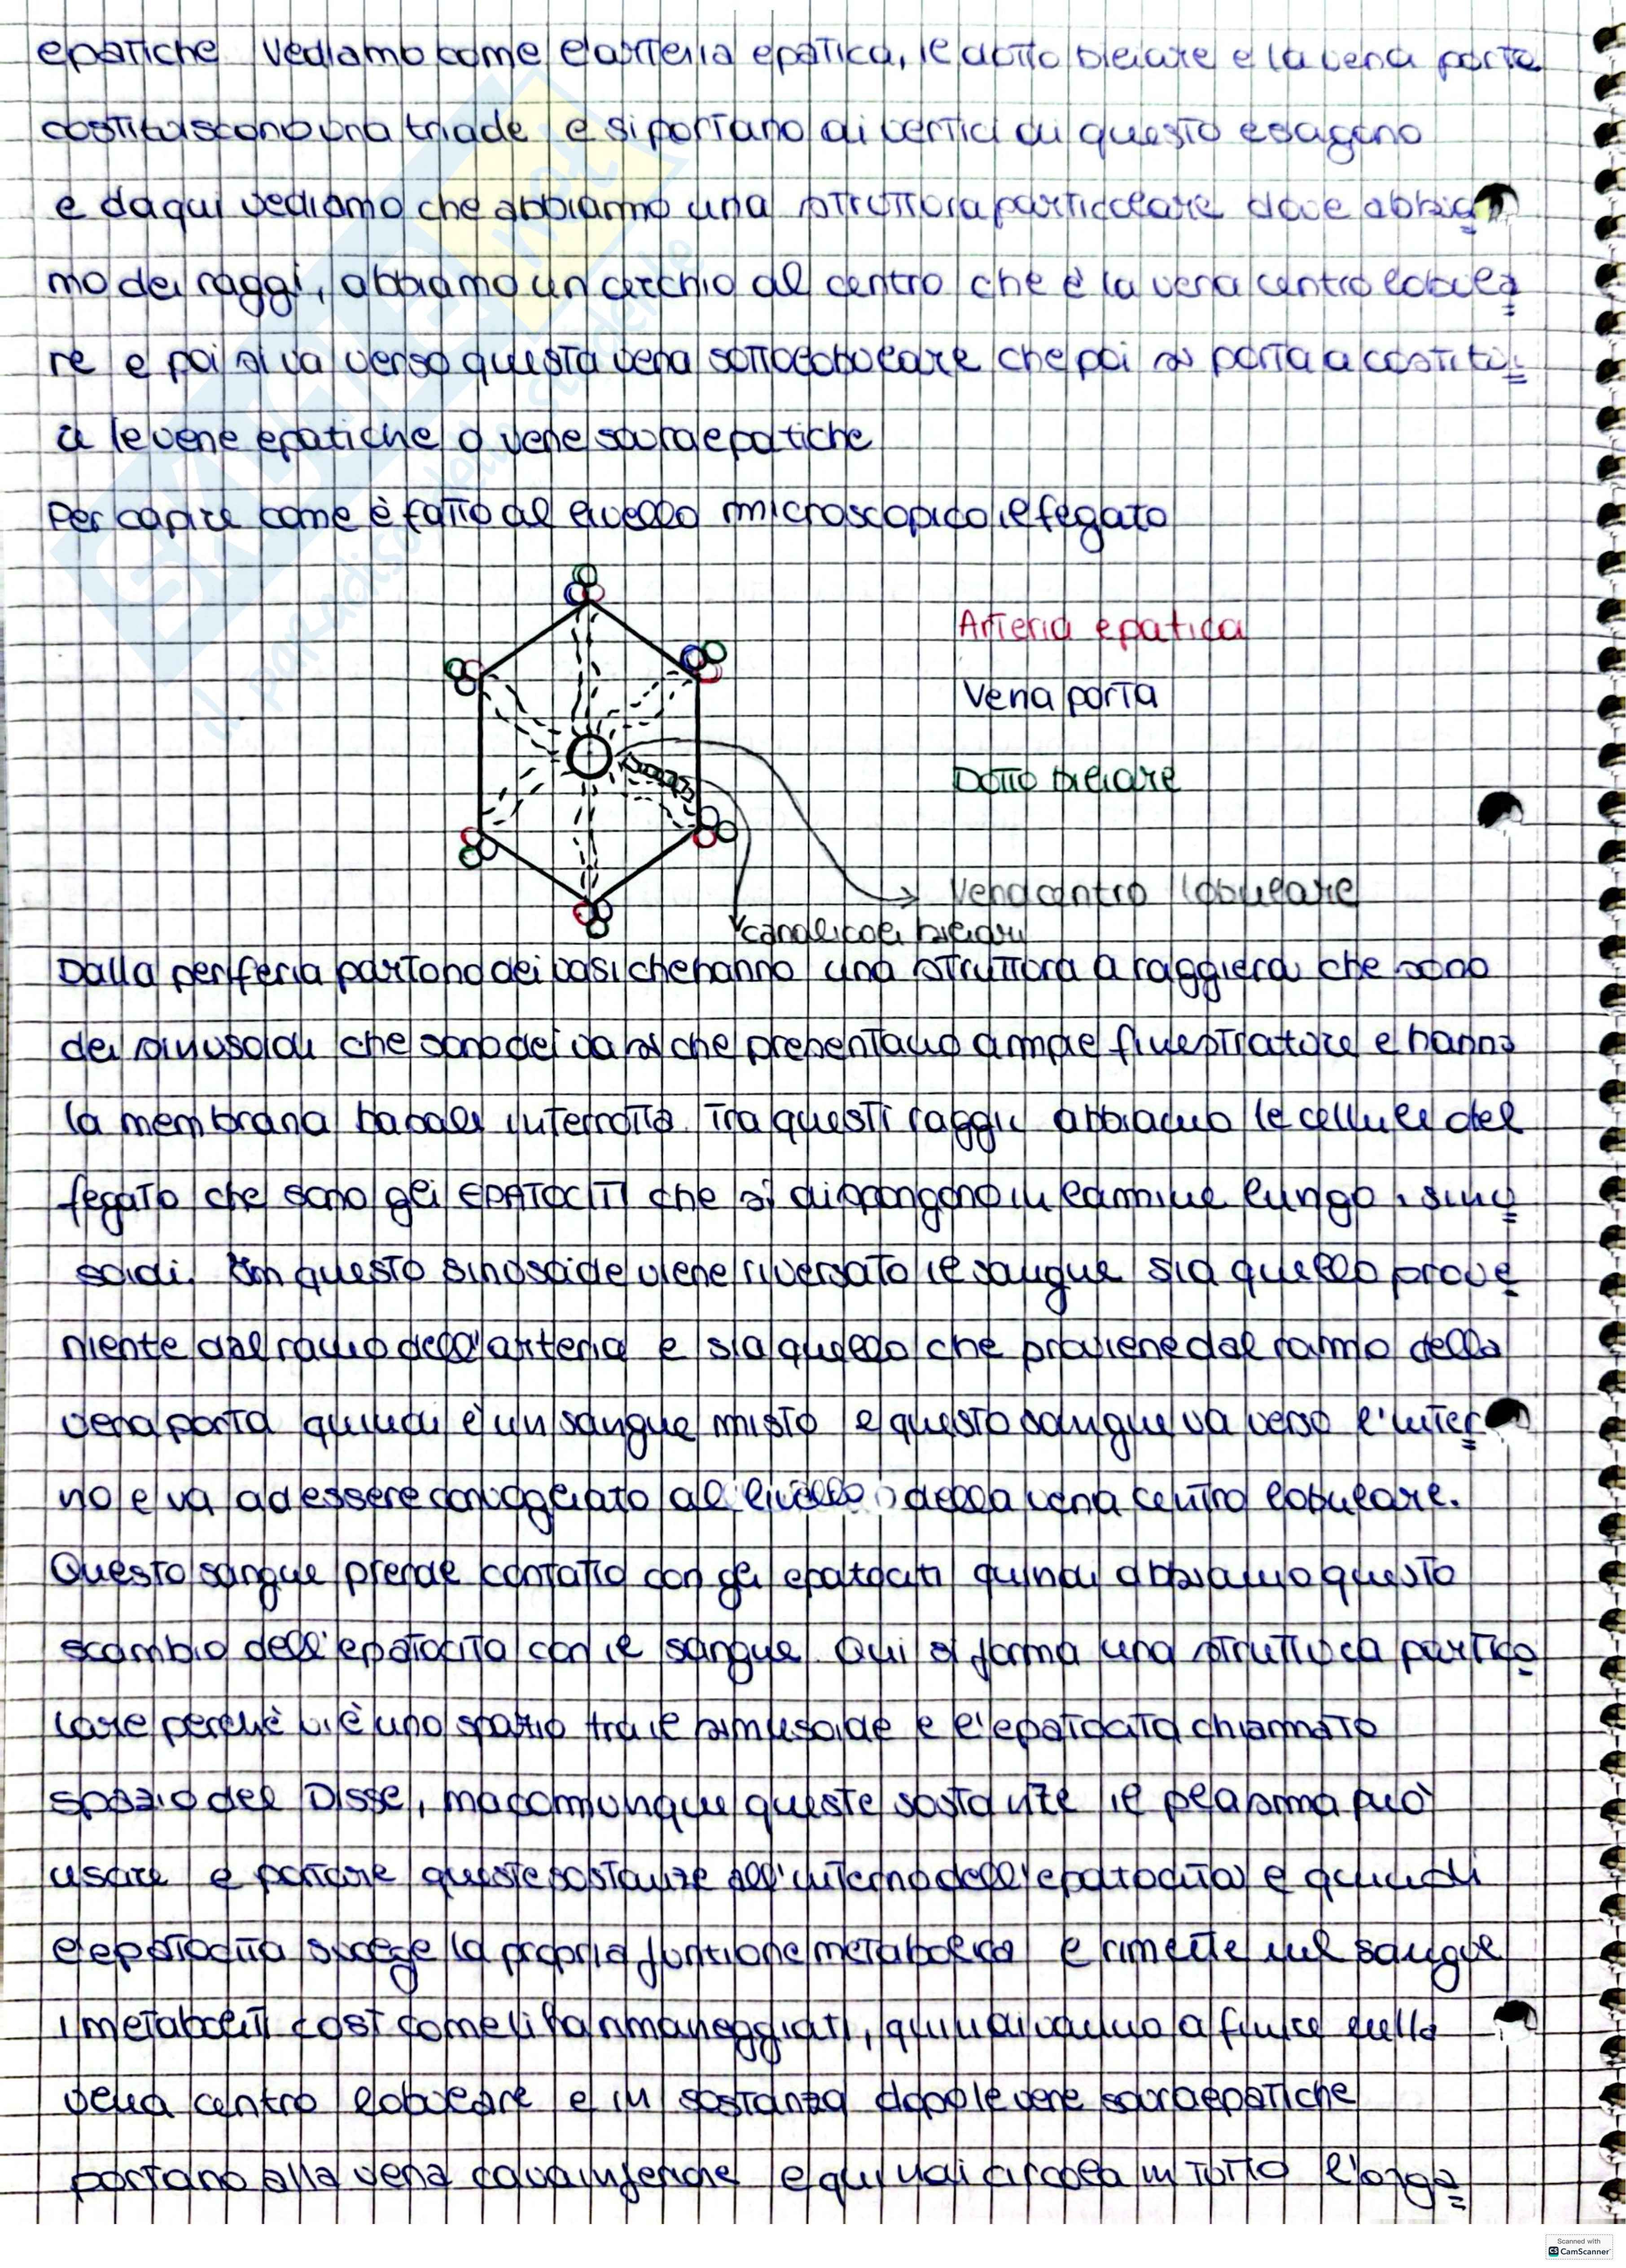 epatiche vediamo come l'arteria epatica, il dotto biliare e la vena porta
costituiscono una triade e si portano ai vertici di questo esagono
e da qui vediamo che abbiamo una struttura particolare dove abbia
mo dei raggi, abbiamo un cerchio al centro che è la vena centro lobula
re e poi si va verso questa vena sottolobulare che poi si porta a costitui
re le vene epatiche o vene sovraepatiche
Per capire come è fatto al livello microscopico il fegato
Arteria epatica
Vena porta
Dotto biliare
Vena centro lobulare
canalicoli biliari
Dalla periferia partono dei vasi che hanno una struttura a raggiera che sono
dei sinusoidi che sono dei vasi che presentano ampie finestrature e hanno
la membrana basale interrotta. Tra questi raggi abbiamo le cellule del
fegato che sono gli EPATOCITI che si dispongono in lamine lungo i sinu
soidi. In questo sinusoide viene riversato il sangue sia quello prove
niente dal ramo dell'arteria e sia quello che proviene dal ramo della
vena porta quindi è un sangue misto e questo sangue va verso l'inter
no e va ad essere convogliato al livello della vena centro lobulare.
Questo sangue prende contatto con gli epatociti quindi abbiamo questo
scambio dell'epatocita con il sangue. Qui si forma una struttura partico
lare perché vi è uno spazio tra il sinusoide e l'epatocita chiamato
spazio del Disse, ma comunque queste sostanze il plasma può
usare e portare queste sostanze all'interno dell'epatocita e quindi
l'epatocita svolge la propria funzione metabolica e rimette nel sangue
i metaboliti così come li ha rimaneggiati, quindi vanno a finire nella
vena centro lobulare e in sostanza dopo le vene sovraepatiche
portano alla vena cava inferiore e quindi circola in tutto l'orga
SKUOLA.net
il paradiso dello studente
Scanned with
CS CamScanner